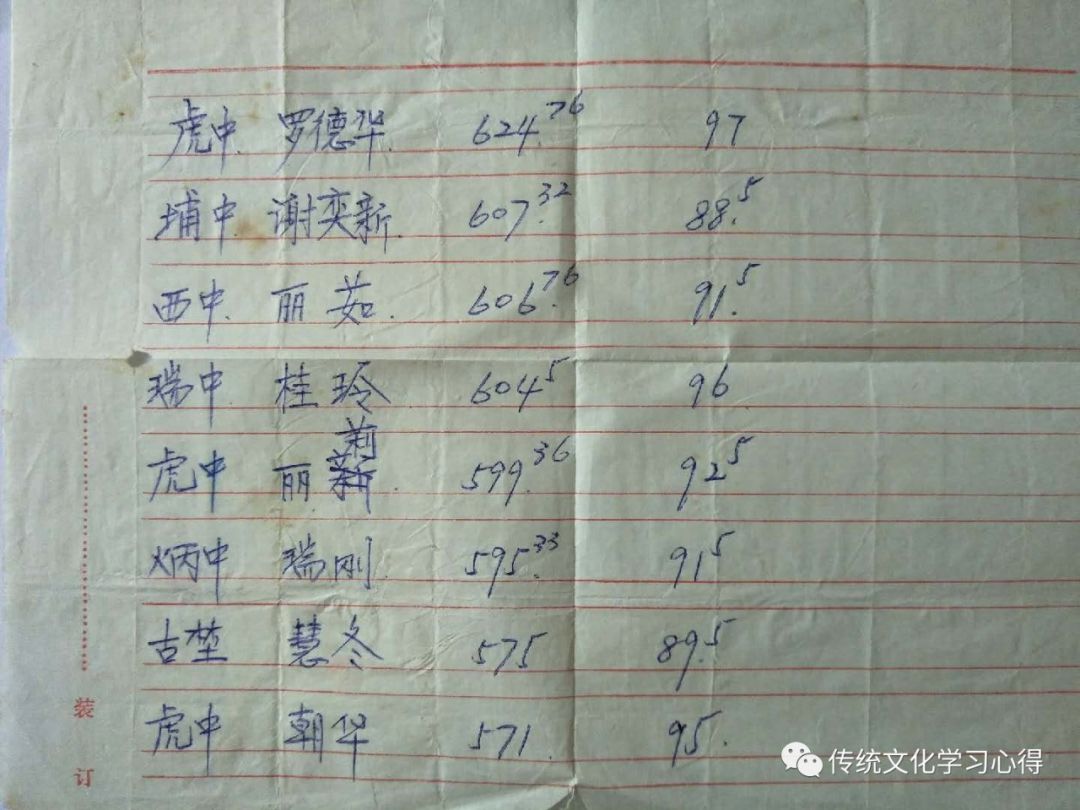 虎中. 罗德华. 624.76 97
埔中 谢奕新. 607.32 88.5
西中. 丽茹. 606.76 91.5
瑞中 桂玲 604.5 96
莉
虎中 丽 599.36 92.5
炳中 瑞刚 595.33 91.5
古埜 慧冬 575 89.5
虎中 朝华 571. 95.
装
订
传统文化学习心得